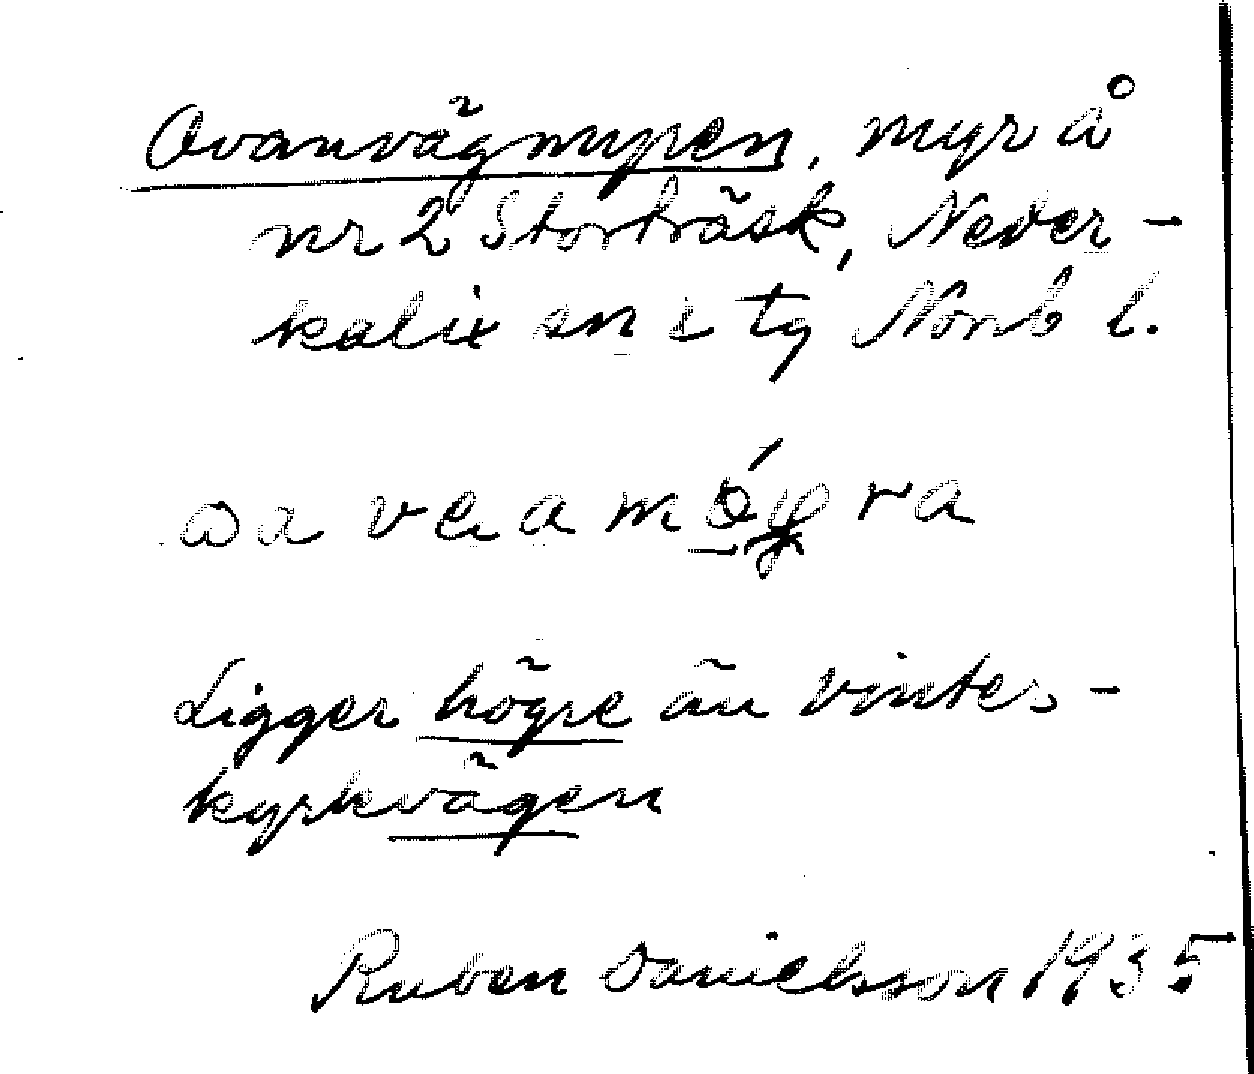 Ovanvägmyren, myr å
nr 2 Storträsk, Neder-
kalix sn i tg Norrb l.
Ligger högre än vinter-
kyrkvägen
Ruben Danielsson 1935